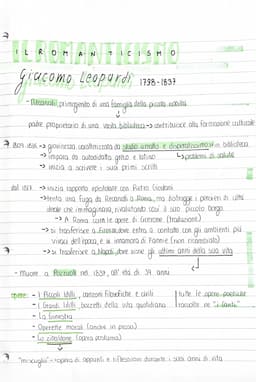 IL ROMANTICISMO
Giacomo Leopardi 1798-1837
- Recanati, primogenito di una famiglia della piccola nobiltà
padre proprietario di una vasta biblioteca → contribuisce alla formazione culturale
1809-1816 → giovinezza caratterizzata da studio "matto e disperatissimo" in biblioteca
→ impara da autodidatta greco e latino → problemi di salute
→ inizia a scrivere i suoi primi scritti
dal 1817 → inizia rapporto epistolare con Pietro Giordani
→ tenta una fuga da Recanati a Roma, ma distrugge i pensieri di vita
ideale che immaginava, rivalutando così il suo piccolo borgo
→ A Roma cura le opere di Cicerone (traduzioni)
→ si trasferisce a Firenze dove entra a contatto con gli ambienti più
vivaci dell'epoca, e si innamora di Fannie (non ricambiato)
→ si trasferisce a Napoli, dove visse gli ultimi anni della sua vita
- Muore a Pozzuoli nel 1837, all'età di 39 anni
opere: - I Piccoli Idilli, canzoni filosofiche e civili
- I Grandi Idilli, bozzetti della vita quotidiana
tutte le opere poetiche raccolte ne "i Canti"
- La Ginestra
- Operette morali (anche in prosa)
- Lo zibaldone (opera postuma)
"miscuglio" - raccolta di appunti e riflessioni durante i suoi anni di vita